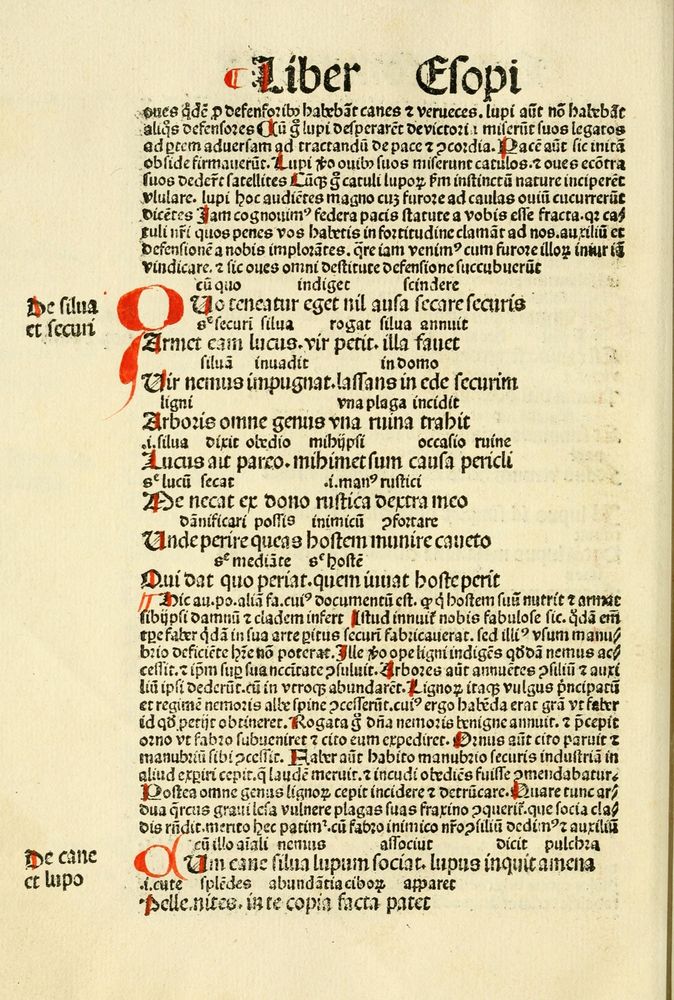 Liber Esopi
oues q̄dē p defensoribꝰ habebāt canes ⁊ verueces. lupi aūt nō habebāt
aliq̄s defensores Cū g̊ lupi desperarēt de victoria miserūt suos legatos
ad p̄tem aduersam ad tractandū de pace ⁊ ꝯcordia. Pacē aūt sic initā
obside firmauerūt. Lupi ꝟo ouibꝰ suos miserunt catulos. ⁊ oues ecōtra
suos dederūt satellites Cūqꝫ g̊ catuli lupoꝝ ẜm instinctū nature inciperēt
vlulare. lupi hoc audiētes magno cuꝫ furore ad caulas ouiū cucurrerūt
dicētes Jam cognouimꝰ federa pacis statute a vobis esse fracta. qꝛ ca/
tuli nr̄i quos penes vos habetis in fortitudine clamāt ad nos. auxiliū et
defensionē a nobis implorātes. q̄re iam venimꝰ cum furore illoꝝ iniuriā
vindicare. ⁊ sic oues omni destitute defensione succubuerūt
cū quo indiget scindere
De silua
et securi
QUo teneatur eget nil ausa secare securis
sꝫ securi silua rogat silua annuit
Armet eam lucus. vir petit. illa fauet
siluā inuadit in domo
Uir nemus impugnat. lassans in ede securim
ligni vna plaga incidit
Arboris omne genus vna ruina trahit
.i. silua dixit obedio mihijpsi occasio ruine
Lucus ait pareo. mihimet sum causa pericli
sꝫ lucū secat .i. manꝰ rustici
Me necat ex dono rustica dextra meo
dānificari possis inimicū ꝯfortare
Unde perire queas hostem munire caueto
sꝫ mediāte sꝫ hostē
Qui dat quo periat. quem iuuat hoste perit
Hic au. po. aliā fa. cuiꝰ documentū est. ꝙ q̇ hostem suū nutrit ⁊ armat
sibijpsi damnū ⁊ cladem infert Istud innuit nobis fabulose sic. q̄dā em̄
tꝑe faber q̇dā in sua arte ꝑitus securī fabricauerat. sed illiꝰ vsum manu/
brio deficiēte hr̄e nō poterat. Ille ꝟo ope ligni indigēs q̇ddā nemus ac/
cessit. ⁊ ip̄m suꝑ sua necc̄itate ꝯsuluit. Arbores aūt annuētes ꝯsiliū ⁊ auxi
liū ipsi dederūt. cū in vtroqꝫ abundarēt. Lignoꝝ itaqꝫ vulgus p̄ncipatū
et regimē nemoris albe spine ꝯcesserūt. cuiꝰ ergo habēda erat grā vt faber
id qd̄ petijt obtineret. Rogata g̊ dn̄a nemoris benigne annuit. ⁊ p̄cepit
orno vt fabro subueniret ⁊ cito eum expediret. Ornus aūt cito paruit ⁊
manubriū sibi ꝯcessit. Faber aūt habito manubrio securis industriā in
aliud exꝑiri cepit. q̄ laudē meruit. ⁊ incudi obediēs fuisse ꝯmendabatur.
Postea omne genus lignoꝝ cepit incidere ⁊ detrūcare. Quare tunc ar/
dua q̄rcus graui lesa vulnere plagas suas fraxino ꝯquerit̄. que socia cla/
dis rn̄dit. merito hec patimꝛ. cū fabro inimico nr̄o ꝯsiliū dedimꝰ ⁊ auxiliū
cū illo aīali nemus associut dicit pulchra
De cane
et lupo
CUm cane silua lupum sociat. lupus inquit amena
.i. cute splēdes abundātia ciboꝝ apparet
Pelle. nites. in te copia facta patet